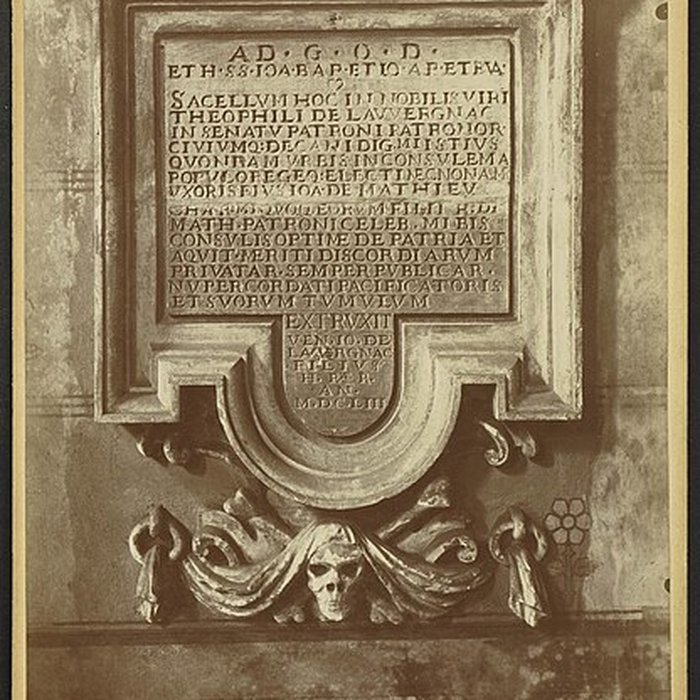 AD · G · O · D ·
ET H · S S · IOA · BAP · ET IO · AP · ET EVA ·
SACELLVM HOC IN NOBILIS VIRI
THEOPHILI DE LAVVERGNAC
IN SENATV PATRONI PATRONOR
CIVIVMQ · DECANI DIG · MI ISTIVS
QVONDAM VRBIS IN CONSVLEM A
POPVLO REGEQ · ELECTI NECNON AM
VXORIS EIVS IOA · DE MATHIEV
FILII
MATH · PATRONI CELEB · MI BIS
CONSVLIS OPTIME DE PATRIA ET
AQVIT · MERITI DISCORDIARVM
PRIVATAR · SEMPER PVBLICAR ·
NVPER CORDATI PACIFICATORIS
ET SVORVM TVMVLVM
EXTRVXIT
VEN · IO · DE
LAVVERGNAC
FILIVS
H · P · R ·
AN ·
M · DC · LIII